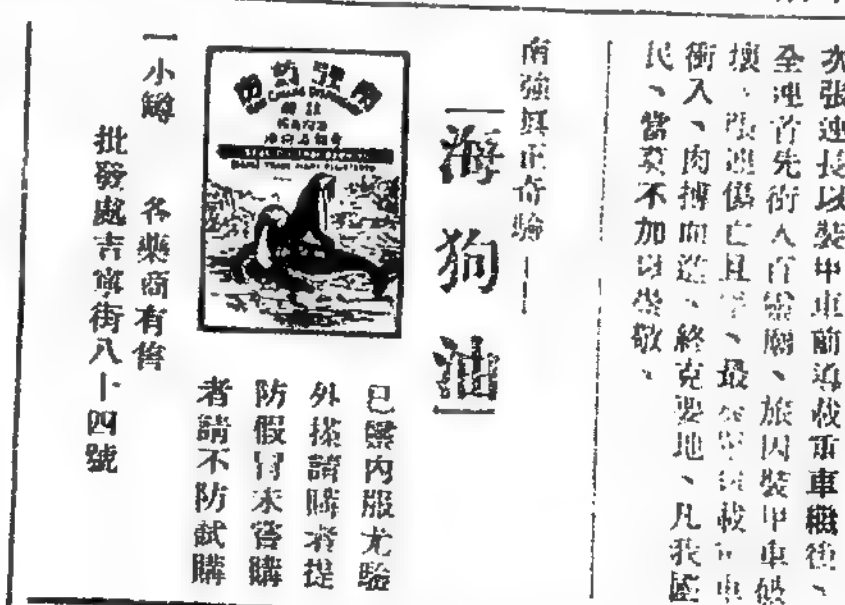 次張連長以裝甲車前導載重車繼後、
全連首先衝入百靈廟、旅因裝甲車破
壞、張連傷亡且半、最載車
衝入、肉搏血迸、終克要地、凡我國
民、當莫不加以崇敬、
南強真正奇驗
海狗油
已驗內服尤驗
外搽請購者提
防假冒未嘗購
者請不防試購
南強藥房
註
一小罇 各藥商有售
批發處吉寧街八十四號